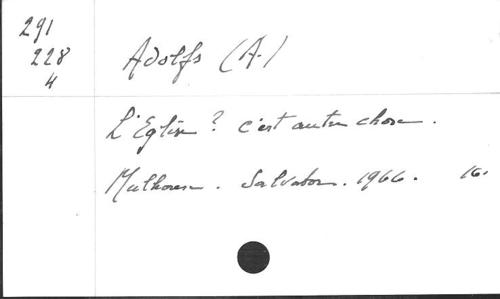 291
228
4
Adolfs (A.)
L'Eglise ? c'est autre chose.
Mulhouse. Salvator. 1966. 16.